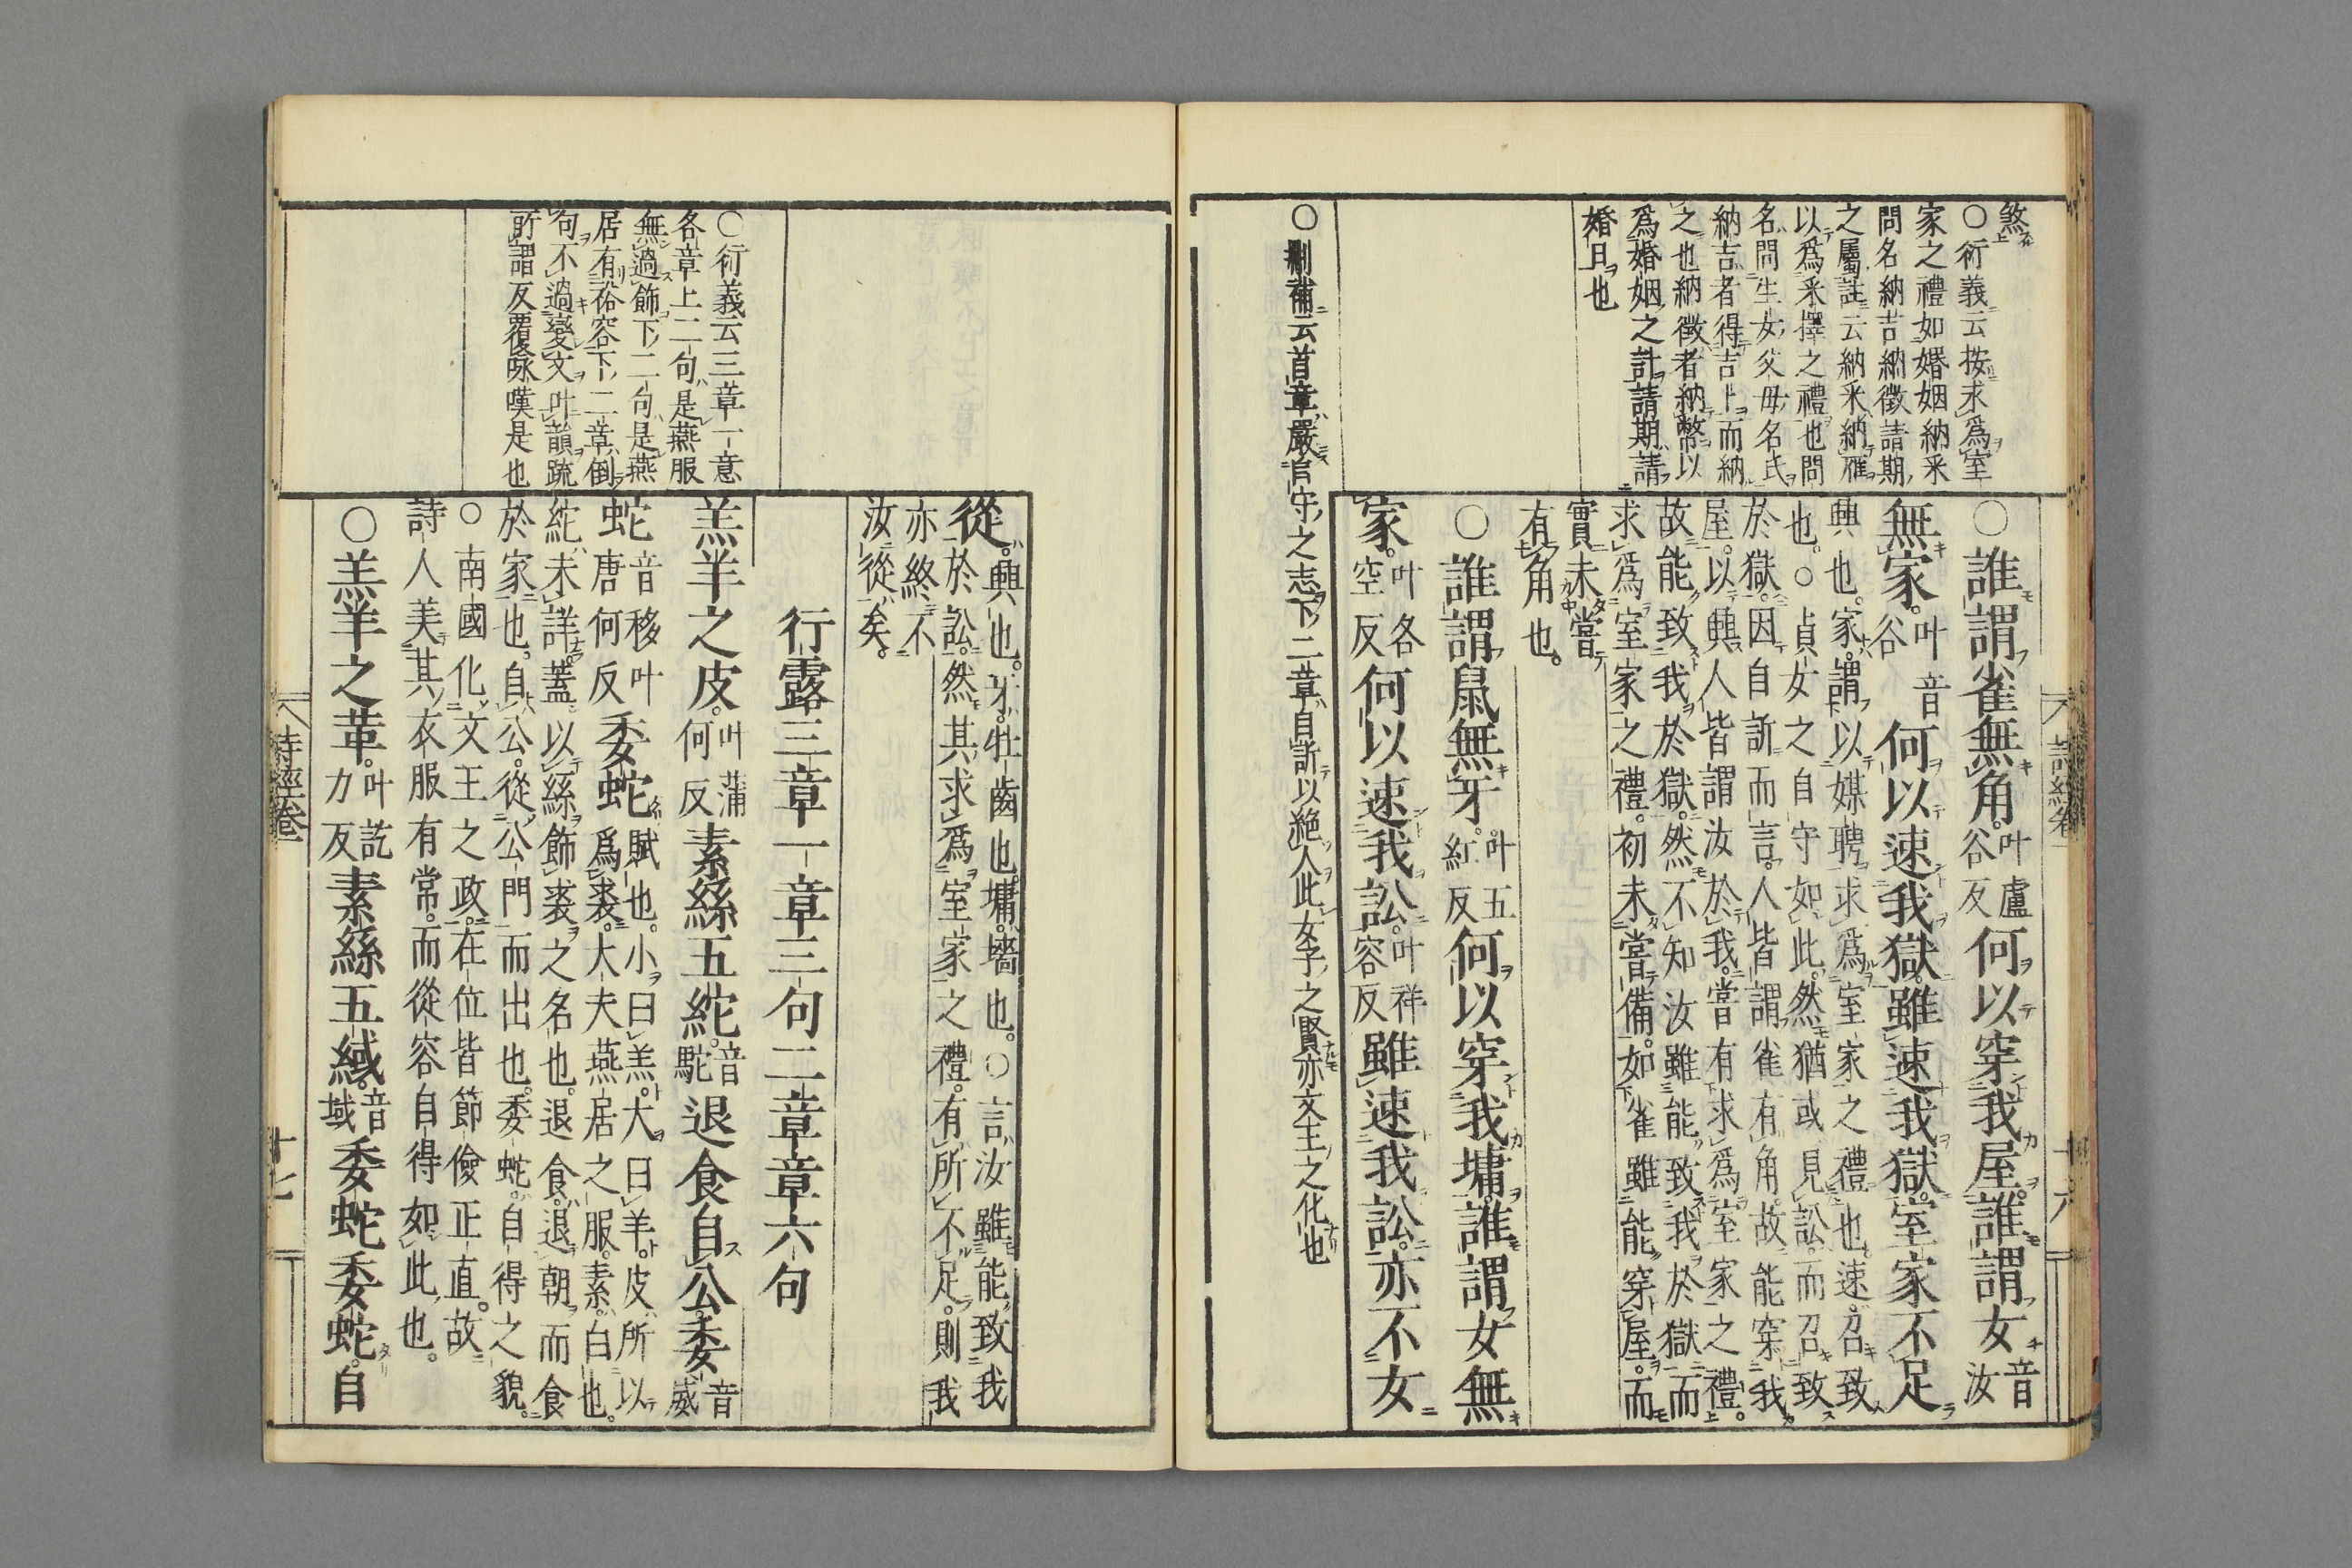 煞
○衍義云按求為室
家之禮如婚姻納采
問名納吉納徵請期
之屬註云納采納雁
以爲采擇之禮也問
名問生女父母名氏
納吉者得吉卜而納
之也納徵者納幣以
爲婚姻之計請期請
婚日也
○誰謂雀無角。叶盧谷反何以穿我屋。誰謂女音汝
無家。叶音谷何以速我獄。雖速我獄。室家不足
興也。家。謂以媒聘求為室家之禮也。速。召致
也。○貞女之自守如此。然猶或見訟。而召致
於獄。因自訴而言。人皆謂雀有角。故能穿我
屋。以興人皆謂汝於我。嘗有求為室家之禮。
故能致我於獄。然不知汝雖能致我於獄。而
求為室家之禮。初未嘗備。如雀雖能穿屋。而
實未嘗
有角也。
○誰謂鼠無牙。叶五紅反何以穿我墉。誰謂女無
家。叶各空反何以速我訟。叶祥容反雖速我訟。亦不女
○刪補云首章嚴自守之志下二章自訴以絶人此女子之賢亦文王之化也
詩經卷
十六
從。興也。牙。牡齒也。墉。墻也。○言汝雖能致我
於訟。然其求為室家之禮。有所不足。則我
亦終不
汝從矣。
行露三章一章三句二章章六句
○衍義云三章一意
各章上二句是燕服
無過飾下二句是燕
居有裕容下二章倒
句不過變文叶韻䟽
所謂反覆咏嘆是也
羔羊之皮。叶蒲何反素絲五紽。音駝退食自公委音威
蛇音移叶唐何反委蛇賦也。小曰羔。大曰羊。皮所以爲裘。大夫燕居之服。素。白也。
紽未詳。蓋以絲飾裘之名也。退食。退朝而食
於家也。自公。從公門而出也。委蛇。自得之貌。
○南國化文王之政。在位皆節儉正直。故
詩人美其衣服有常。而從容自得如此也。
○羔羊之革。叶訖力反素絲五緎。音域委蛇委蛇。自
詩經卷
十七